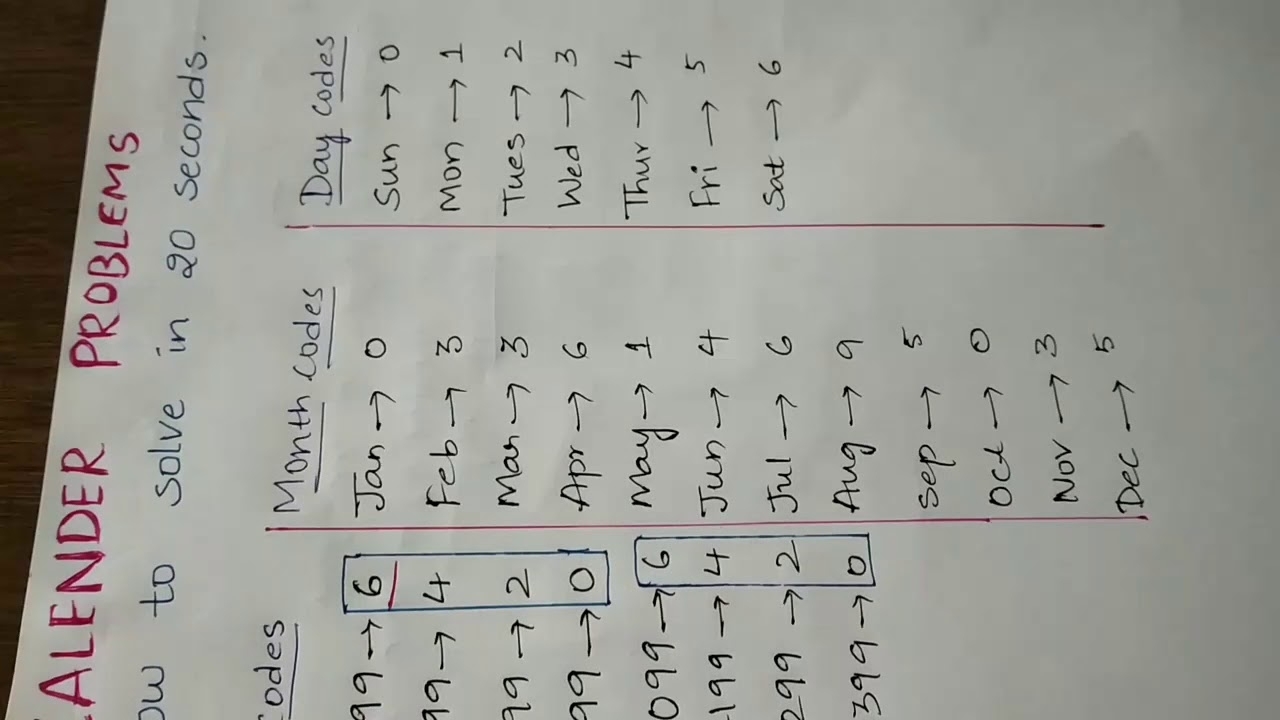 CALENDER PROBLEMS
ow to solve in 20 seconds.
Codes
99 → 6
99 → 4
99 → 2
99 → 0
099 → 6
199 → 4
299 → 2
399 → 0
Month codes
Jan → 0
Feb → 3
Mar → 3
Apr → 6
May → 1
Jun → 4
Jul → 6
Aug → 9
Sep → 5
Oct → 0
Nov → 3
Dec → 5
Day codes
Sun → 0
Mon → 1
Tues → 2
Wed → 3
Thur → 4
Fri → 5
Sat → 6